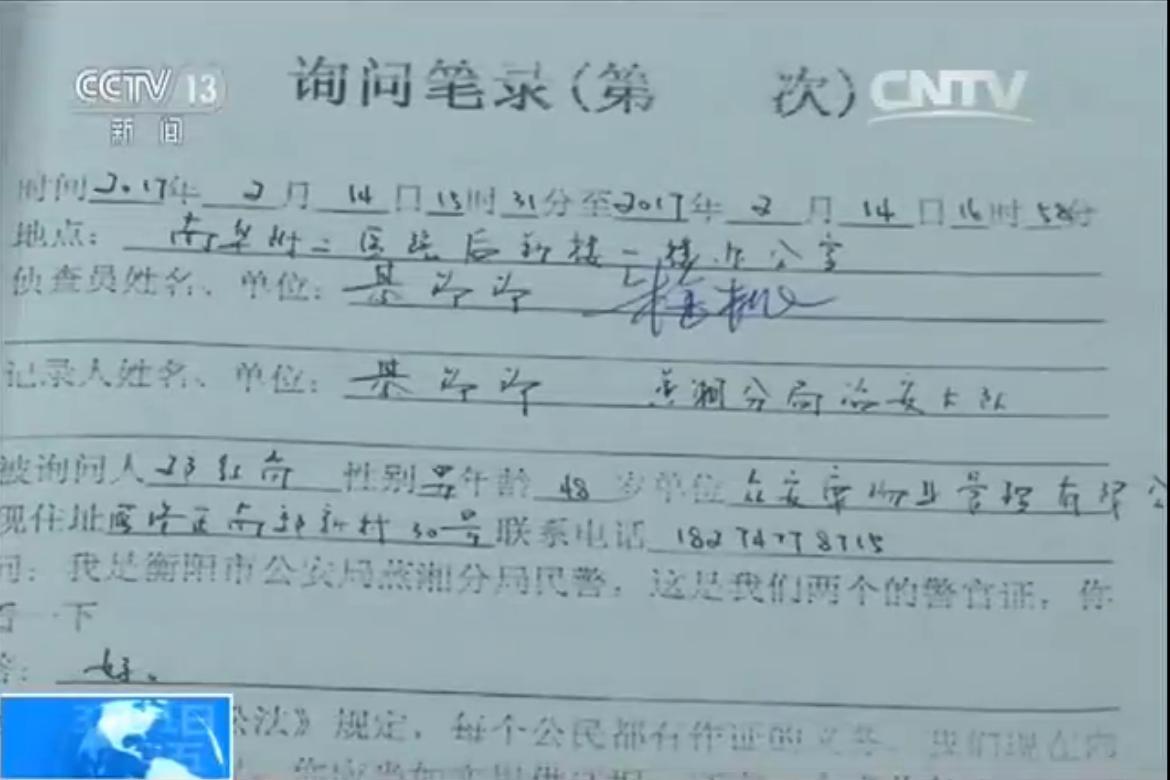 CCTV 13
新闻
CNTV
询问笔录(第 次)
时间2017年 2月 14日15时31分至2017年 2月 14日16时58分
地点: 南华附二医院后新楼一楼办公室
侦查员姓名、单位:
记录人姓名、单位: 蒸湘分局治安大队
被询问人 性别男年龄 48 岁单位 物业管理有限公
现住址 南郊新村30号联系电话 18274778715
问: 我是衡阳市公安局蒸湘分局民警,这是我们两个的警官证,你
看一下
答: 好。
讼法》规定,每个公民都有作证的义务。我们现在向